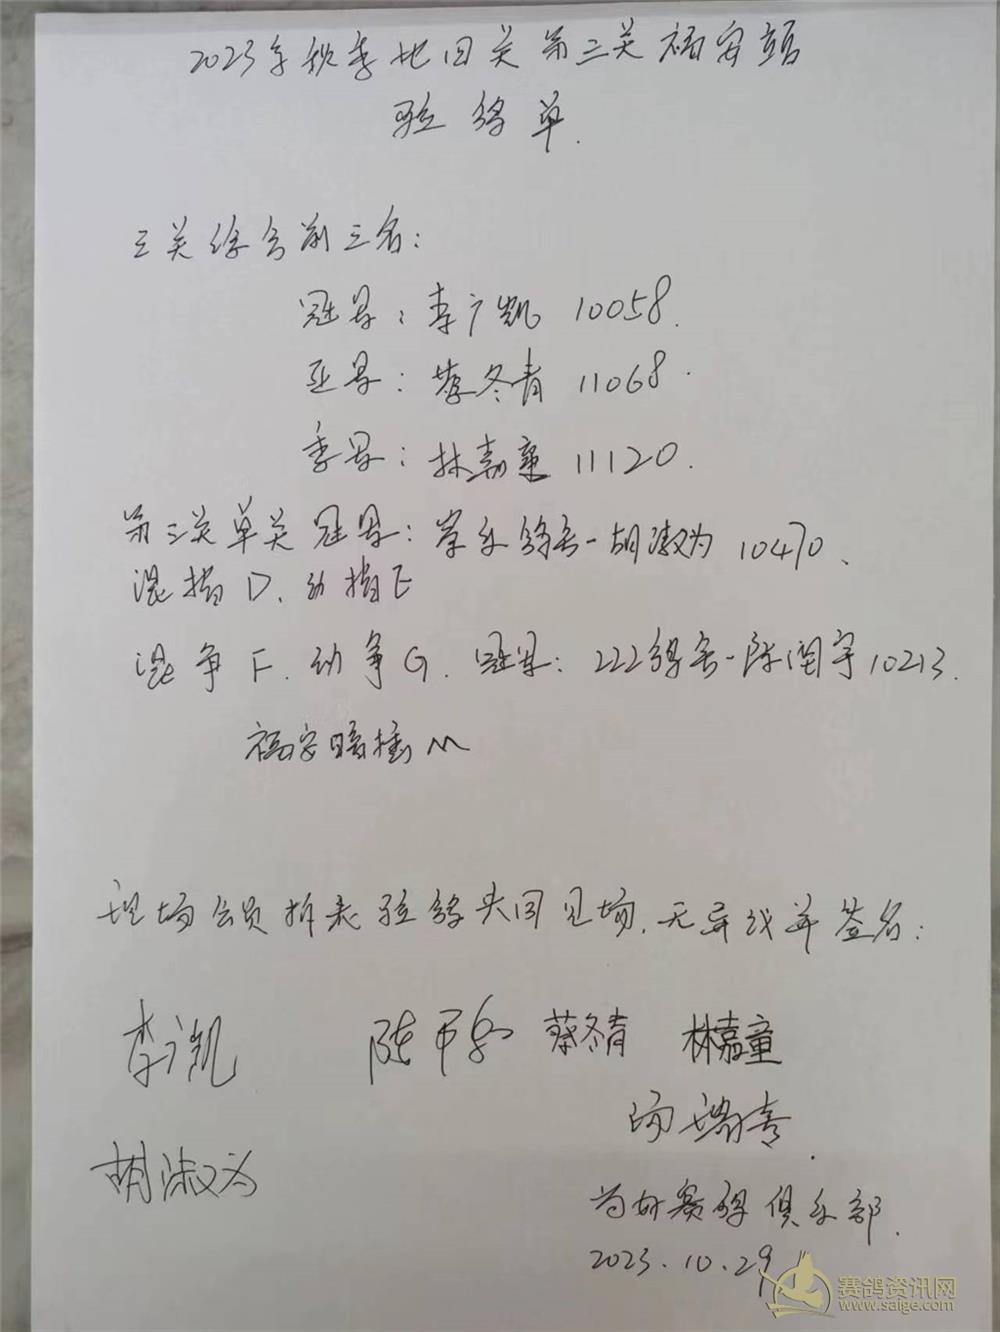 2023年秋季地面关第三关福安站
验鸽单.
三关综合前三名:
冠军: 李广凯 10058.
亚军: 蔡冬青 11068.
季军: 林嘉童 11120.
第三关单关冠军: 鸽舍-胡淑为 10470.
混指D. 幼指E
混争F. 幼争G. 冠军: 222鸽舍-陈闽宇10213.
福安暗插M
现场会员拆表验鸽共同见场. 无异议并签名:
李广凯 陈 蔡冬青 林嘉童
瑞青.
胡淑为
赛鸽俱乐部.
2023.10.29
赛鸽资讯网
www.saige.com